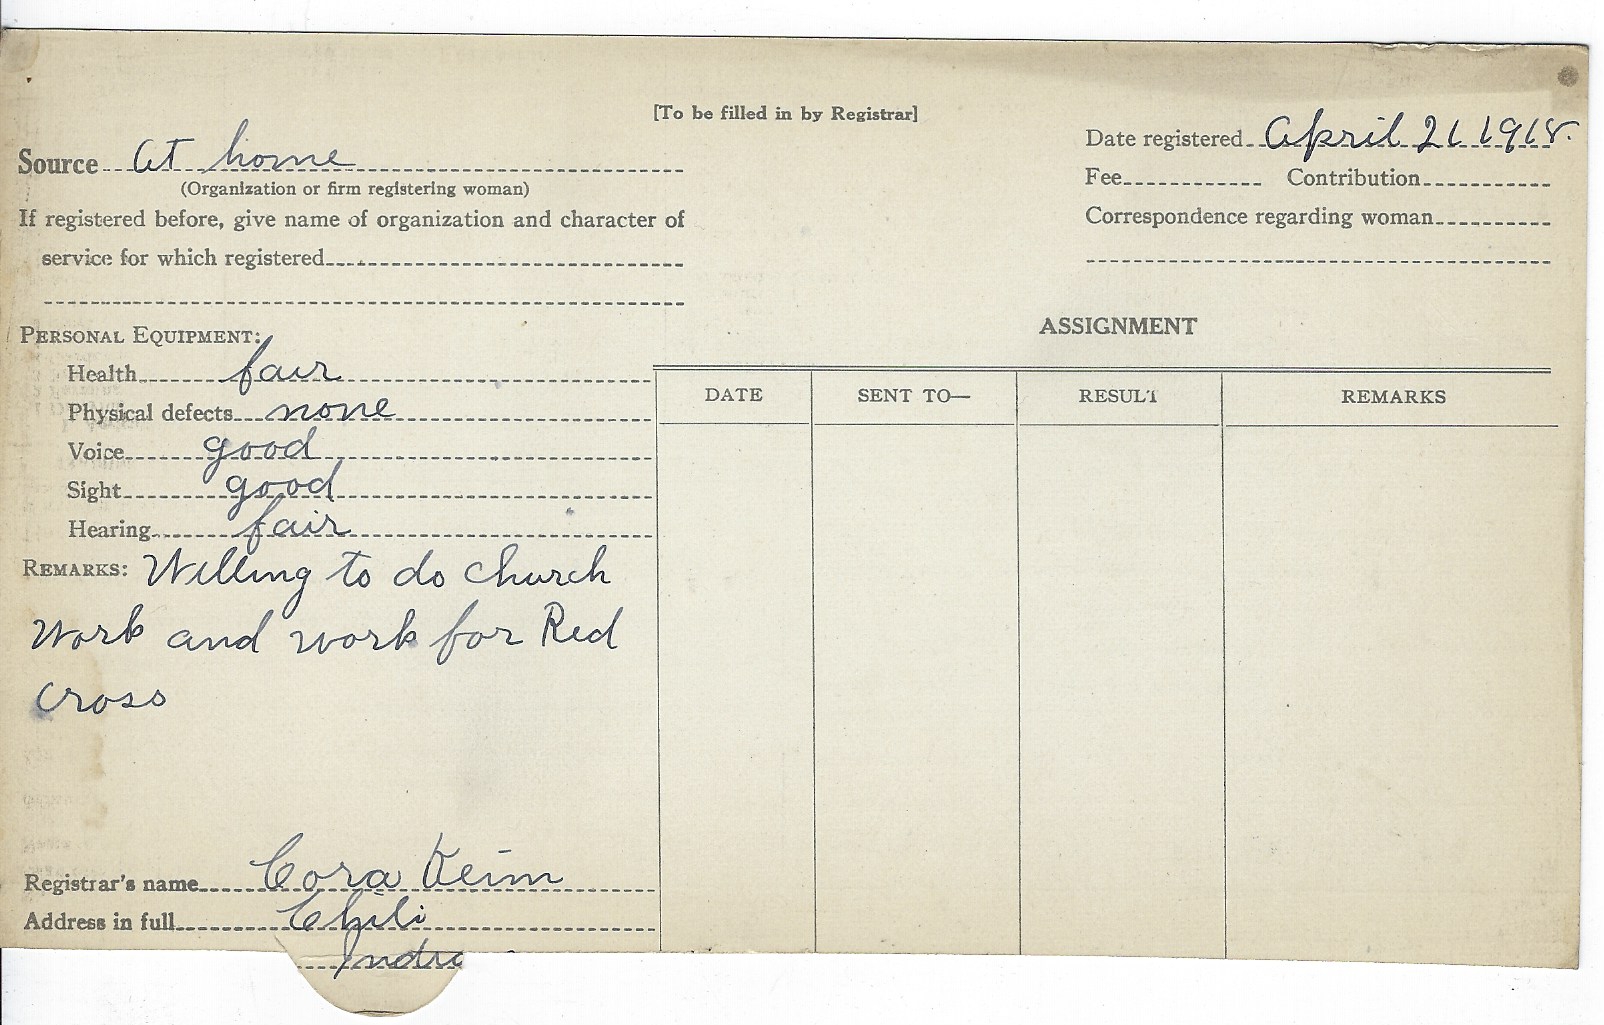 [To be filled in by Registrar]
Source At home
(Organization or firm registering woman)
If registered before, give name of organization and character of
service for which registered
Date registered April 21 1918.
Fee Contribution
Correspondence regarding woman
PERSONAL EQUIPMENT:
Health fair
Physical defects none
Voice good
Sight good
Hearing fair
REMARKS: Willing to do church
work and work for Red
Cross
Registrar's name Cora Keim
Address in full Chili
India
ASSIGNMENT
DATE SENT TO— RESULT REMARKS